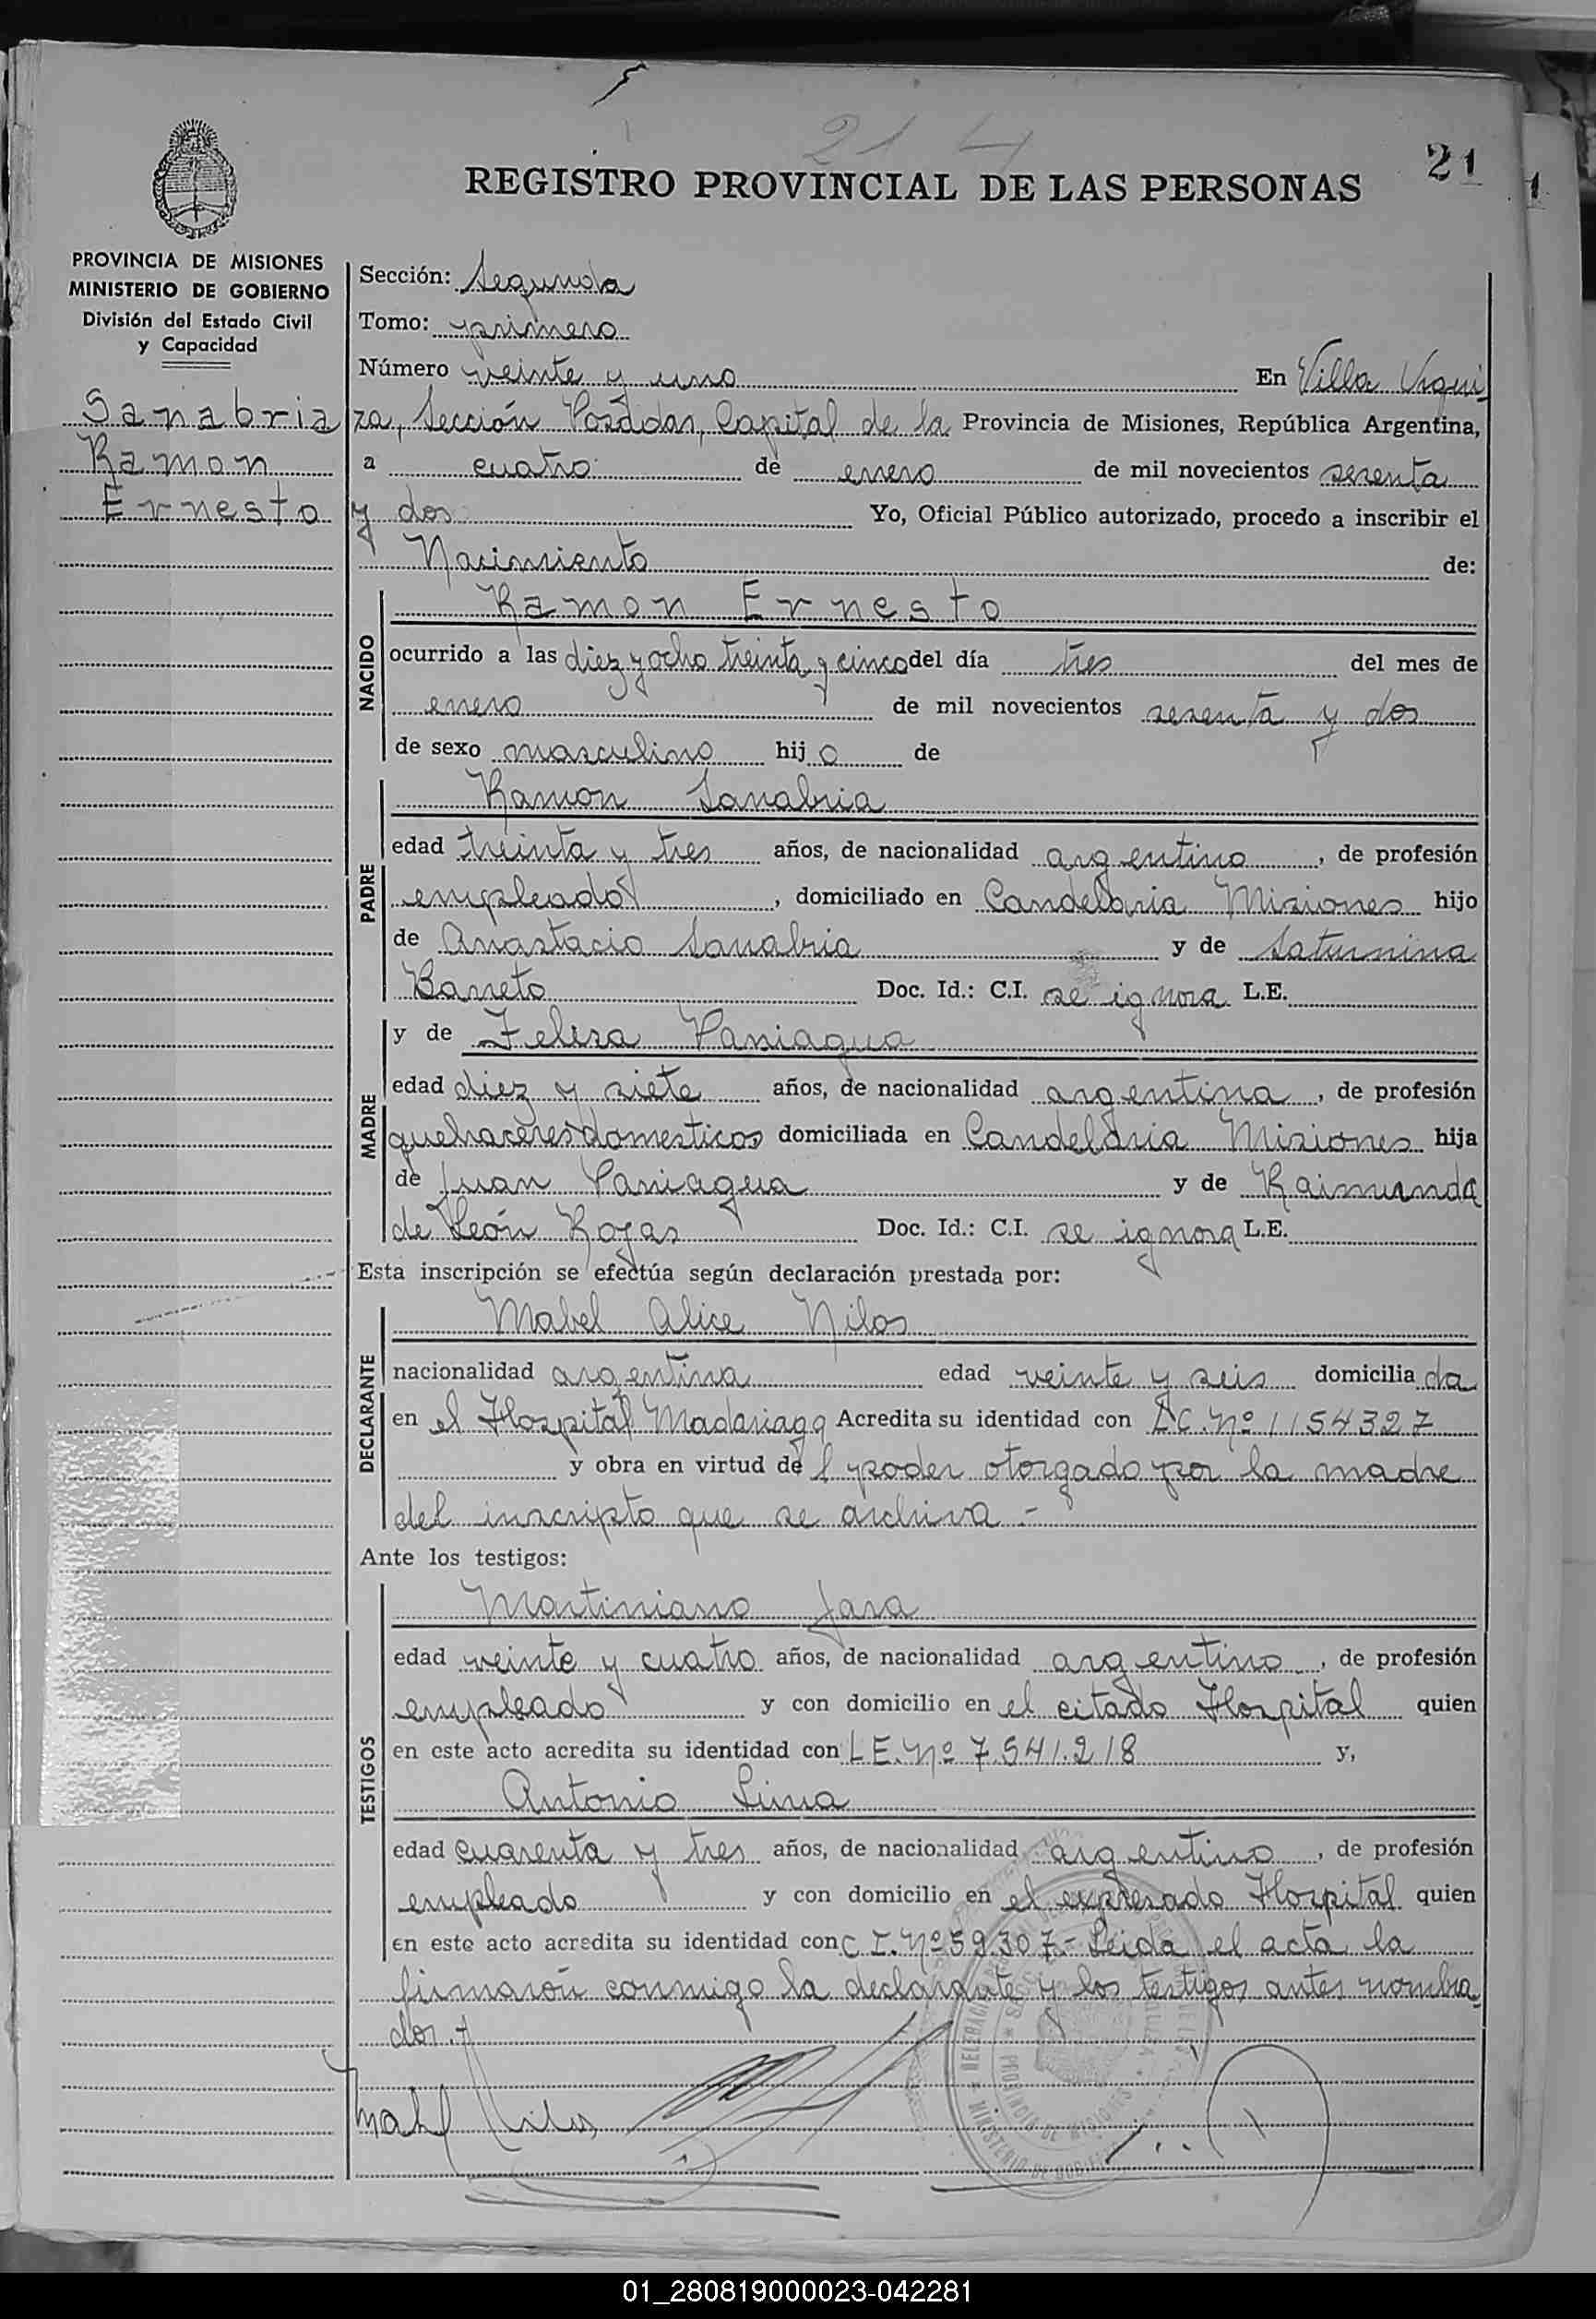 21 4
21
REGISTRO PROVINCIAL DE LAS PERSONAS
PROVINCIA DE MISIONES
MINISTERIO DE GOBIERNO
División del Estado Civil
y Capacidad
Sanabria
Ramon
Ernesto
Sección: Segunda
Tomo: primero
Número veinte y uno En Villa Urqui
za, Sección Posadas, Capital de la Provincia de Misiones, República Argentina,
a cuatro de enero de mil novecientos sesenta
y dos Yo, Oficial Público autorizado, procedo a inscribir el
Nacimiento de:
NACIDO
Ramon Ernesto
ocurrido a las diez y ocho treinta y cinco del día tres del mes de
enero de mil novecientos sesenta y dos
de sexo masculino hijo de
PADRE
Ramon Sanabria
edad treinta y tres años, de nacionalidad argentino, de profesión
empleado, domiciliado en Candelaria Misiones hijo
de Anastacio Sanabria y de Saturnina
Barreto Doc. Id.: C.I. se ignora L.E.
MADRE
y de Felisa Paniagua
edad diez y siete años, de nacionalidad argentina, de profesión
quehaceres domesticos domiciliada en Candelaria Misiones hija
de Juan Paniagua y de Raimunda
de León Rojas Doc. Id.: C.I. se ignora L.E.
Esta inscripción se efectúa según declaración prestada por:
DECLARANTE
Mabel Alice Nilos
nacionalidad argentina edad veinte y seis domiciliada
en el Hospital Madariaga Acredita su identidad con L.C. Nº 1154327
y obra en virtud del poder otorgado por la madre
del inscripto que se archiva.-
Ante los testigos:
TESTIGOS
Martiniano Jara
edad veinte y cuatro años, de nacionalidad argentino, de profesión
empleado y con domicilio en el citado Hospital quien
en este acto acredita su identidad con L.E. Nº 7.541.218 y,
Antonio Lima
edad cuarenta y tres años, de nacionalidad argentino, de profesión
empleado y con domicilio en el expresado Hospital quien
en este acto acredita su identidad con C.I. Nº 59.307.- Leida el acta la
firmaron conmigo la declarante y los testigos antes nombra
dos.-
Mabel Nilos
MINISTERIO DE GOBIERNO
PROVINCIA DE MISIONES
01_280819000023-042281